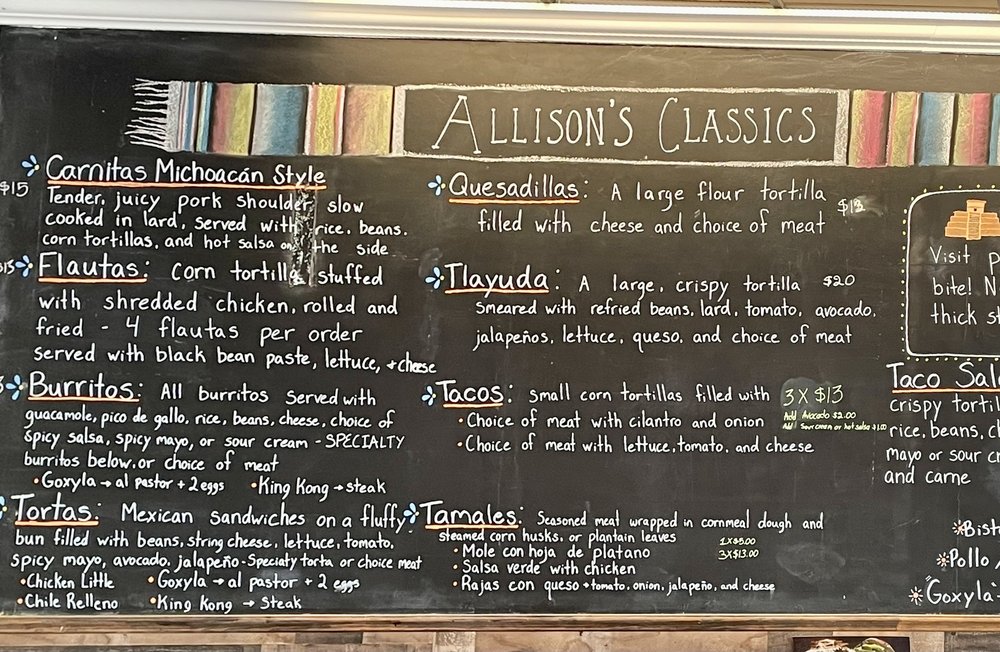 ALLISON'S CLASSICS
Carnitas Michoacán Style
$15
Tender, juicy pork shoulder slow
cooked in lard, served with rice, beans,
corn tortillas, and hot salsa on the side
Flautas: corn tortilla stuffed
with shredded chicken, rolled and
fried - 4 flautas per order
served with black bean paste, lettuce, + cheese
Burritos: All burritos served with
guacamole, pico de gallo, rice, beans, cheese, choice of
spicy salsa, spicy mayo, or sour cream - SPECIALTY
burritos below, or choice of meat
•Goxyla → al pastor + 2 eggs •King Kong → steak
Tortas: Mexican sandwiches on a fluffy
bun filled with beans, string cheese, lettuce, tomato,
spicy mayo, avocado, jalapeño - Specialty torta or choice meat
•Chicken Little •Goxyla → al pastor + 2 eggs
•Chile Relleno •King Kong → Steak
Quesadillas: A large flour tortilla
filled with cheese and choice of meat
Tlayuda: A large, crispy tortilla $20
smeared with refried beans, lard, tomato, avocado,
jalapeños, lettuce, queso, and choice of meat
Tacos: small corn tortillas filled with 3 X $13
• Choice of meat with cilantro and onion Add Avocado $2.00
Add Sour cream or hot salsa $1.00
• Choice of meat with lettuce, tomato, and cheese
Tamales: Seasoned meat wrapped in cornmeal dough and
steamed corn husks, or plantain leaves
1X$5.00
3X$13.00
• Mole con hoja de platano
• Salsa verde with chicken
• Rajas con queso + tomato, onion, jalapeño, and cheese
Visit
bite!
thick
Taco
crispy
rice, beans,
mayo or sour
and carne
Pollo
Goxyla